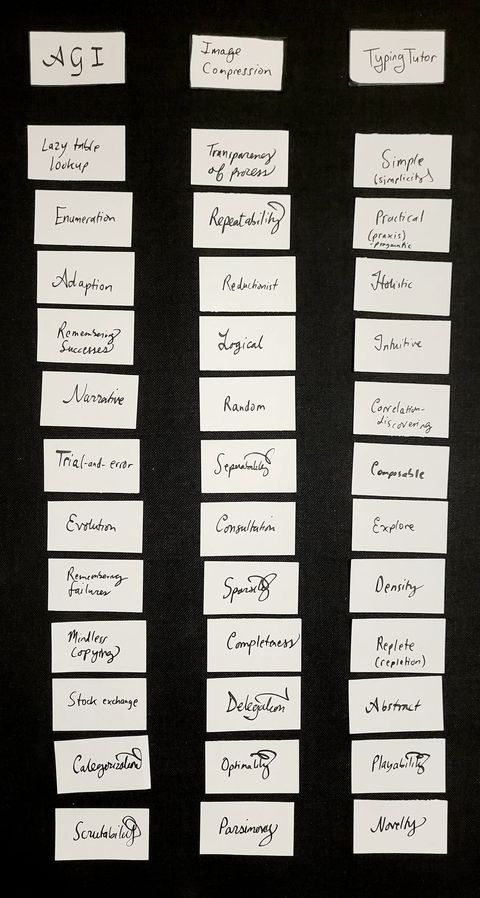 AGI
Image
Compression
Typing Tutor
Lazy table
lookup
Enumeration
Adaption
Remembering
Successes
Narrative
Trial-and-error
Evolution
Remembering
failures
Mindless
Copying
Stock exchange
Categorization
Scrutability
Transparency
of process
Repeatability
Reductionist
Logical
Random
Separability
Consultation
Sparsity
Completeness
Delegation
Optimality
Parsimony
Simple
(simplicity)
Practical
(praxis)
-pragmatic
Holistic
Intuitive
Correlation-
discovering
Composable
Explore
Density
Replete
(repletion)
Abstract
Playability
Novelty